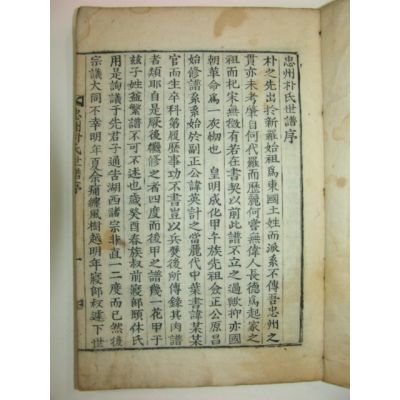 忠州朴氏世譜序
朴之先出於新羅始祖爲東國土姓而派系不傳吾忠州之
貫亦未考肇自何代羅而歷麗何嘗無偉人長德爲起家之
祖而杞宋無徵有若在書契以前此譜不立之過歟抑亦國
朝革命爲一灰物也 皇明成化甲午族先祖僉正公原昌
始修譜系系始於副正公諱英計之當麗代中葉書諱某某
官而生卒科第履歷事功不書豈以兵燹後所傳錄其肉譜
者類耶自是厥後機修之者四度而後甲之譜幾一花甲于
玆子姓益繁譜不可不述也歲癸酉春族叔前寢郞頤休氏
用是詢議于先君子通告湖西諸宗非直一二度而已然後
宗議大同不幸明年夏余痛纏風樹越明年寢郞叔遽下世
忠州朴氏世譜序
一